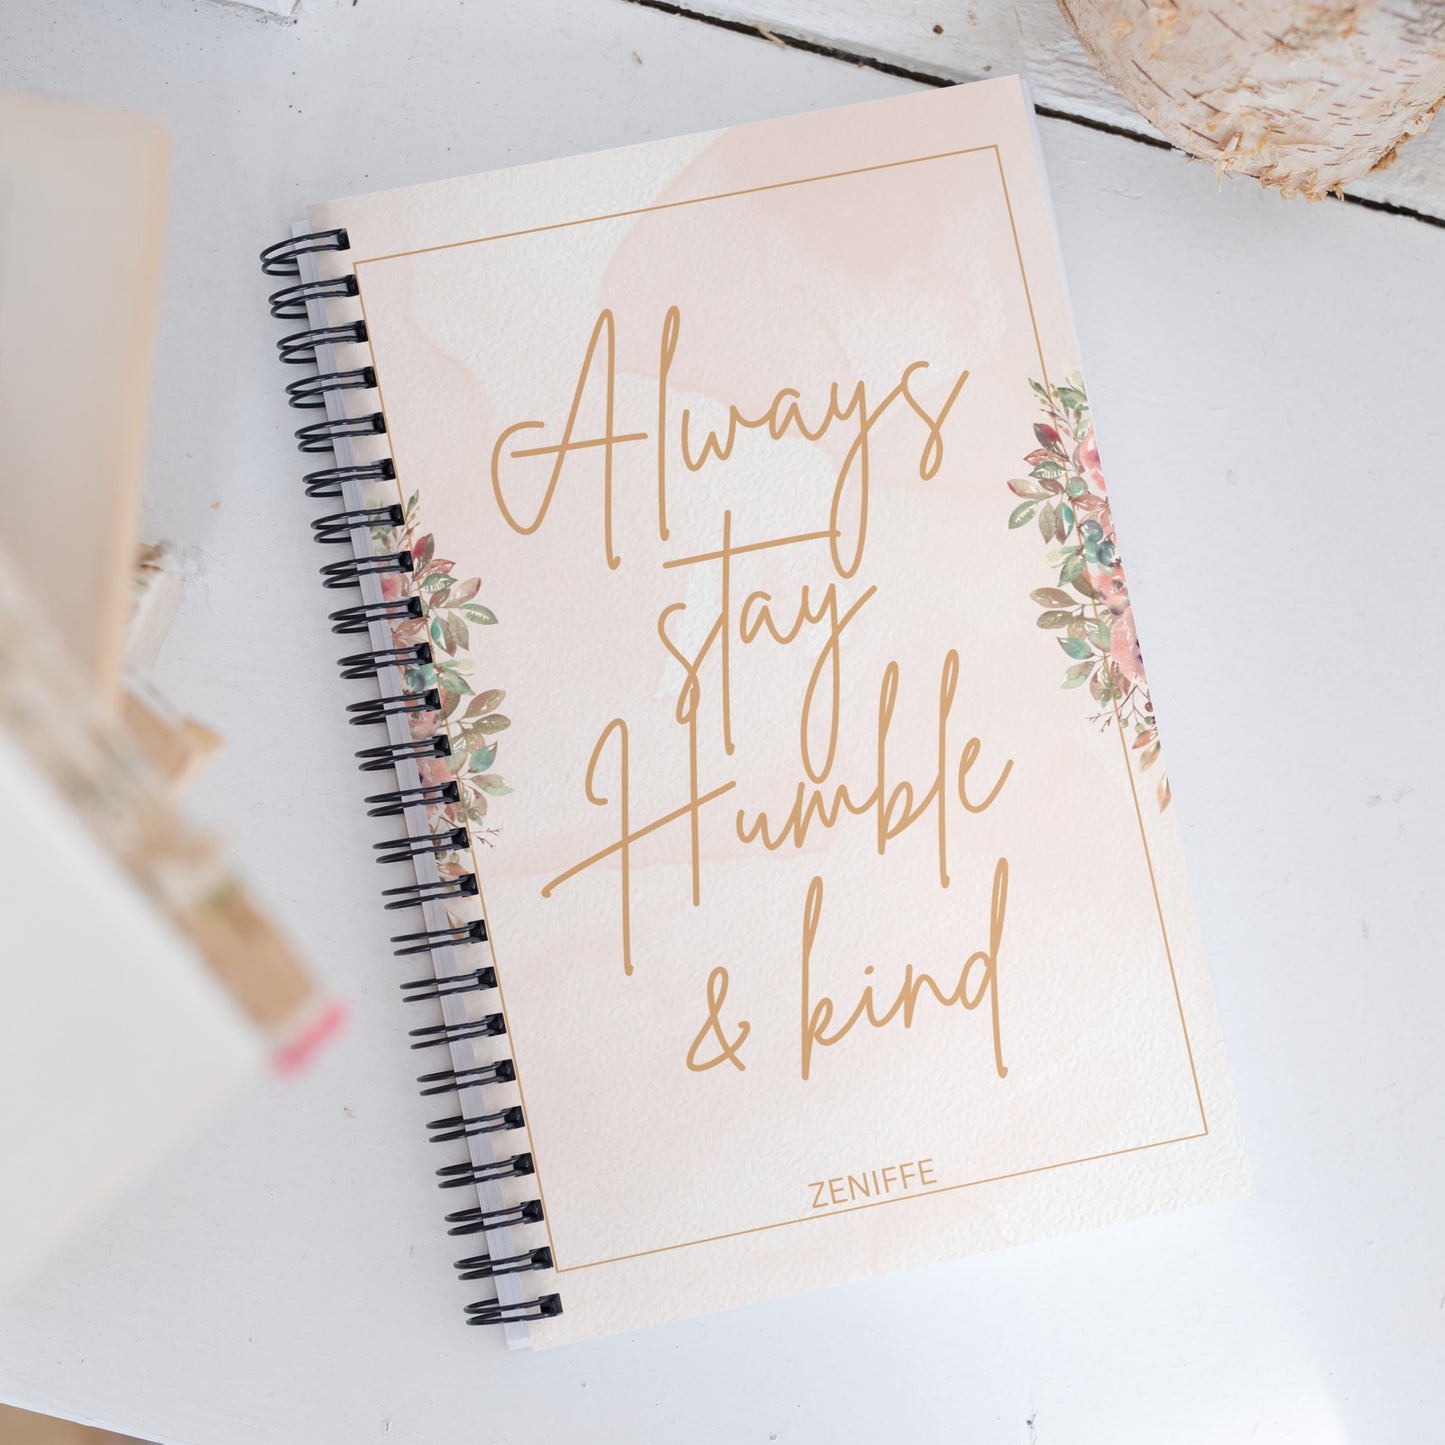 Always
stay
Humble
& kind
ZENIFFE